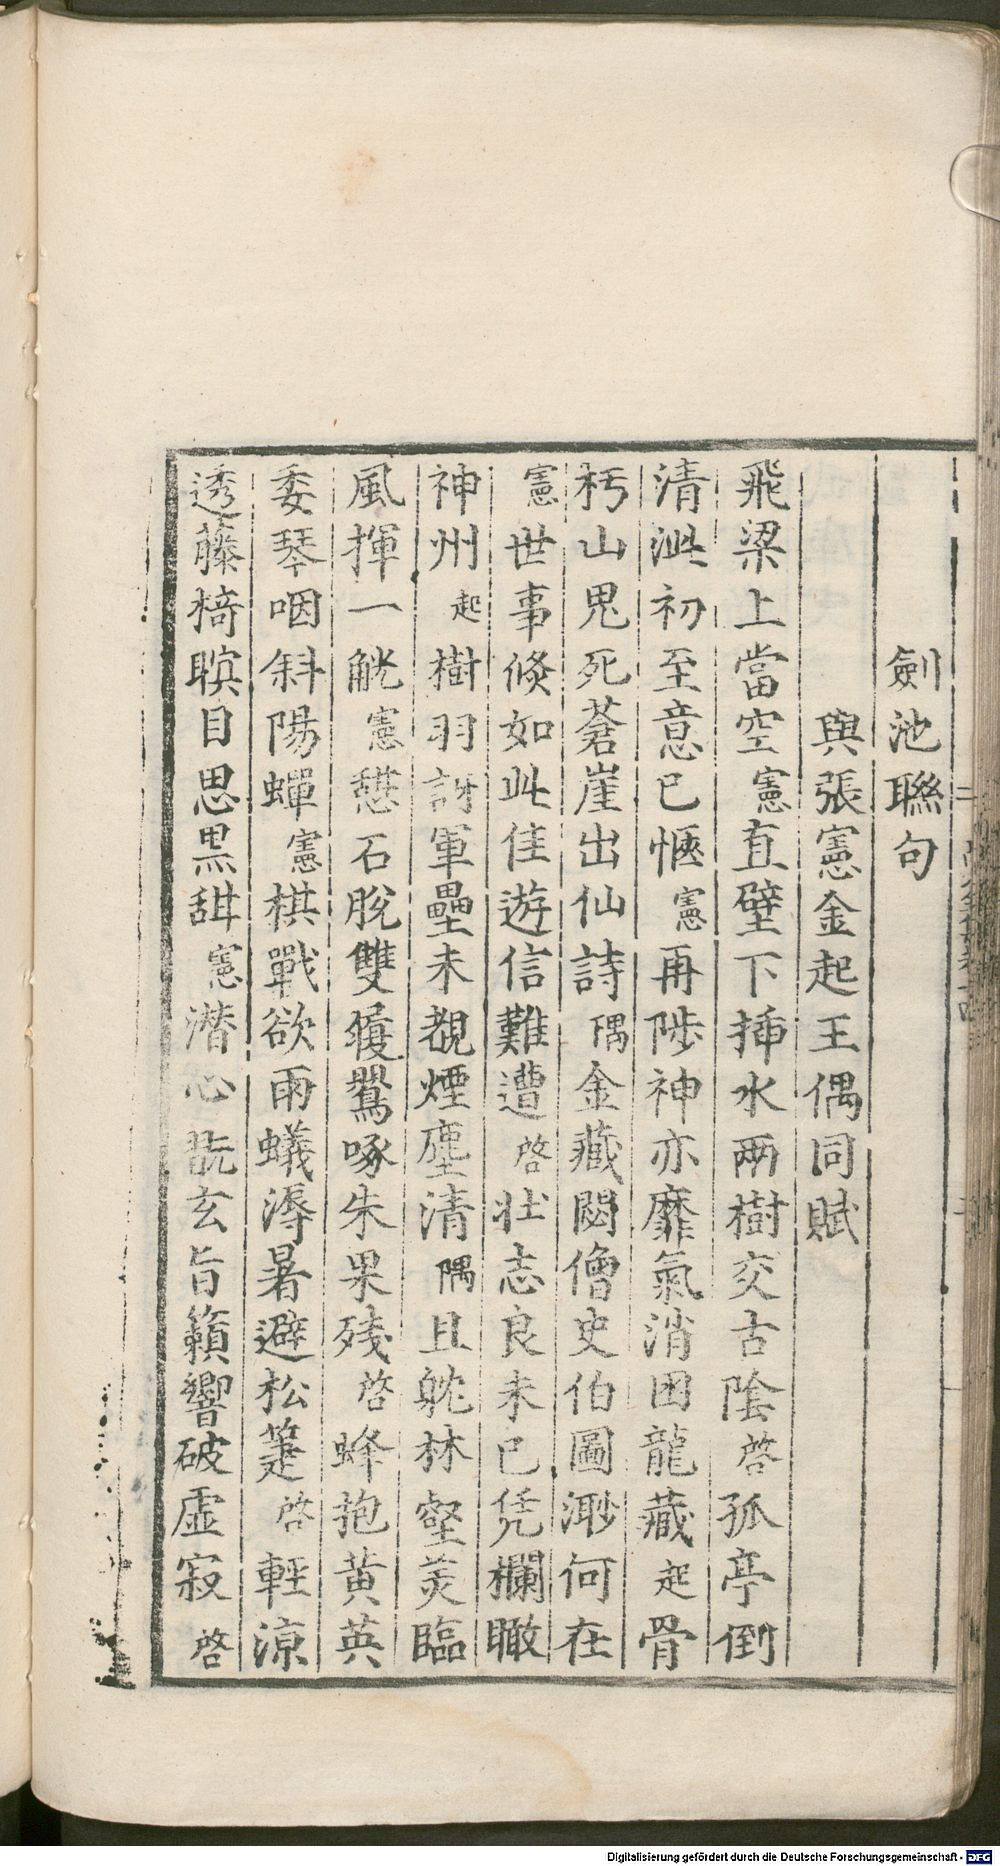 劍池聯句
與張憲金起王偶同賦
飛梁上當空憲直壁下揷水兩樹交古陰啓孤亭倒
清泚初至意已愜憲再陟神亦靡氣消困龍藏起骨
朽山鬼死蒼崖出仙詩隅金藏閟僧史伯圖渺何在
憲世事倐如此佳遊信難遭啓壯志良未已凭欄瞰
神州起樹羽訝軍壘未覩煙塵清隅且躭林壑羙臨
風揮一觥憲憇石脫雙履鸎啄朱果殘啓蜂抱黄英
委琴咽斜陽蟬憲棋戰欲雨蟻溽暑避松箑啓輕涼
透藤椅瞑目思黒甜憲潜心翫玄旨籟響破虛寂啓
Digitalisierung gefördert durch die Deutsche Forschungsgemeinschaft - DFG